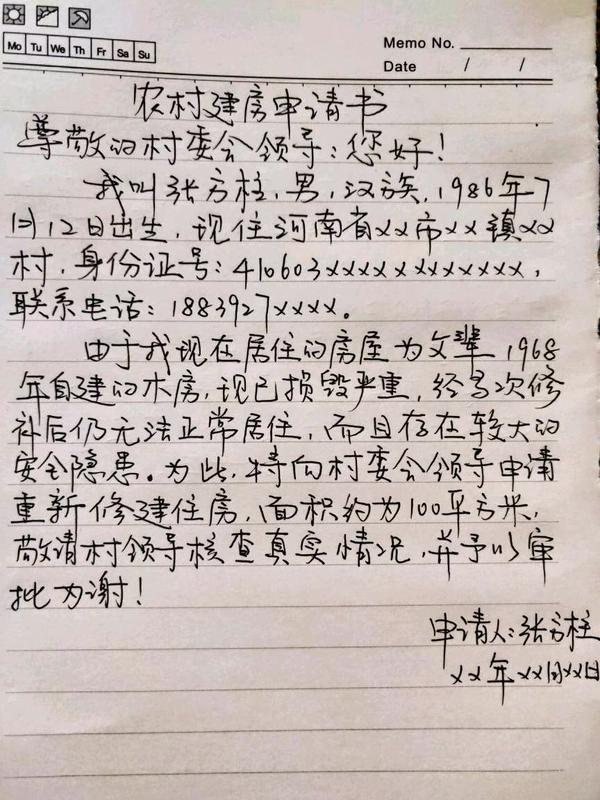 Mo Tu We Th Fr Sa Su
Memo No.
Date / /
农村建房申请书
尊敬的村委会领导:您好!
我叫张方柱,男,汉族,1986年7
月12日出生,现住河南省xx市xx镇xx
村,身份证号:410603xxxxxxxxxxxx,
联系电话:1883927xxxx。
由于我现在居住的房屋为父辈1968
年自建的木房,现已损毁严重,经多次修
补后仍无法正常居住,而且存在较大的
安全隐患。为此,特向村委会领导申请
重新修建住房,面积约为100平方米,
敬请村领导核查真实情况,并予以审
批为谢!
申请人:张方柱
xx年xx月xx日